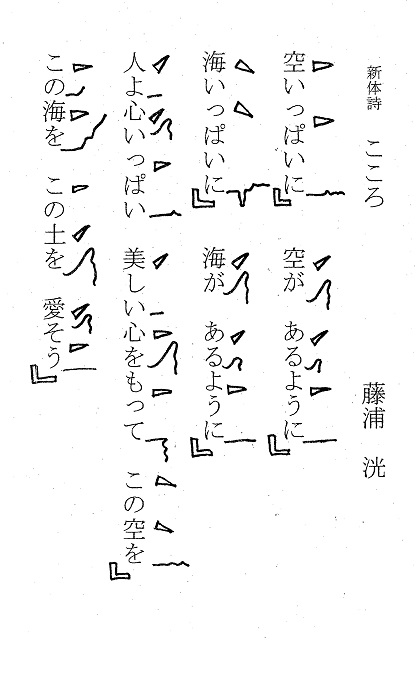 新体詩 こころ
藤浦 洸
空いっぱいに 空が あるように
海いっぱいに 海が あるように
人よ心いっぱい 美しい心をもって この空を
この海を この土を 愛そう